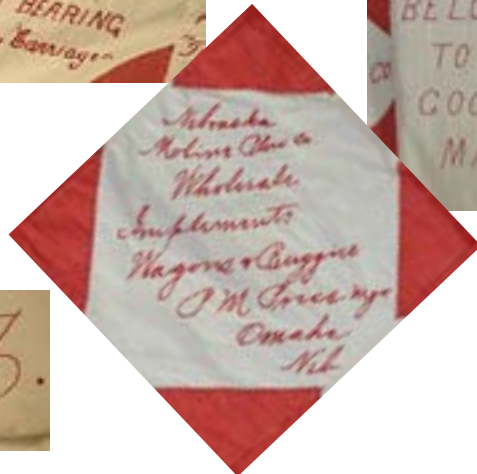 BEARING
Carriage
CO
TO
Nebraska
Moline Plow Co
Wholesale
Implements
Wagons & Buggies
P M Price mgr
Omaha
Neb